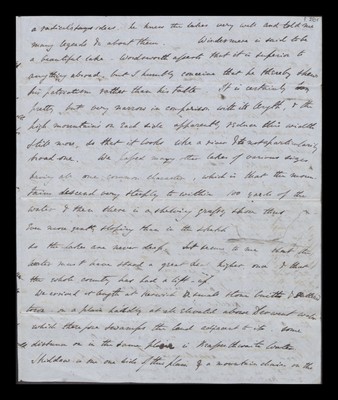 a radical & says ideas. he knew the lakes very well and told me
many legends &c about them. Windermere is said to be
a beautiful lake. Wordsworth asserts that it is superior to
anything abroad, but I humbly conceive that he thereby shews
his patriotism rather than his taste. It is certainly very
pretty, but very narrow in comparison with its length, & the
high mountains on each side apparently reduce this width
still more, so that it looks like a river & not a particularly
broad one. We passed many other lakes of various sizes
having all one common character, which is that the moun-
tains descend very steeply to within 100 yards of the
water & then there is a shelving grassy shore thus
even more gently sloping than in the sketch
so the lakes are never deep. It seems to me that the
water must have stood a great deal higher once & that
the whole country has had a lift-up.
We arrived at length at Keswick a small stone built &
town in a plain hardly at all elevated above Derwent water
which therefore swamps the land adjacent to it. Some
distance on in the same plain is Bassenthwaite Water
Skiddaw is on one side of this plain & a mountain chain on the